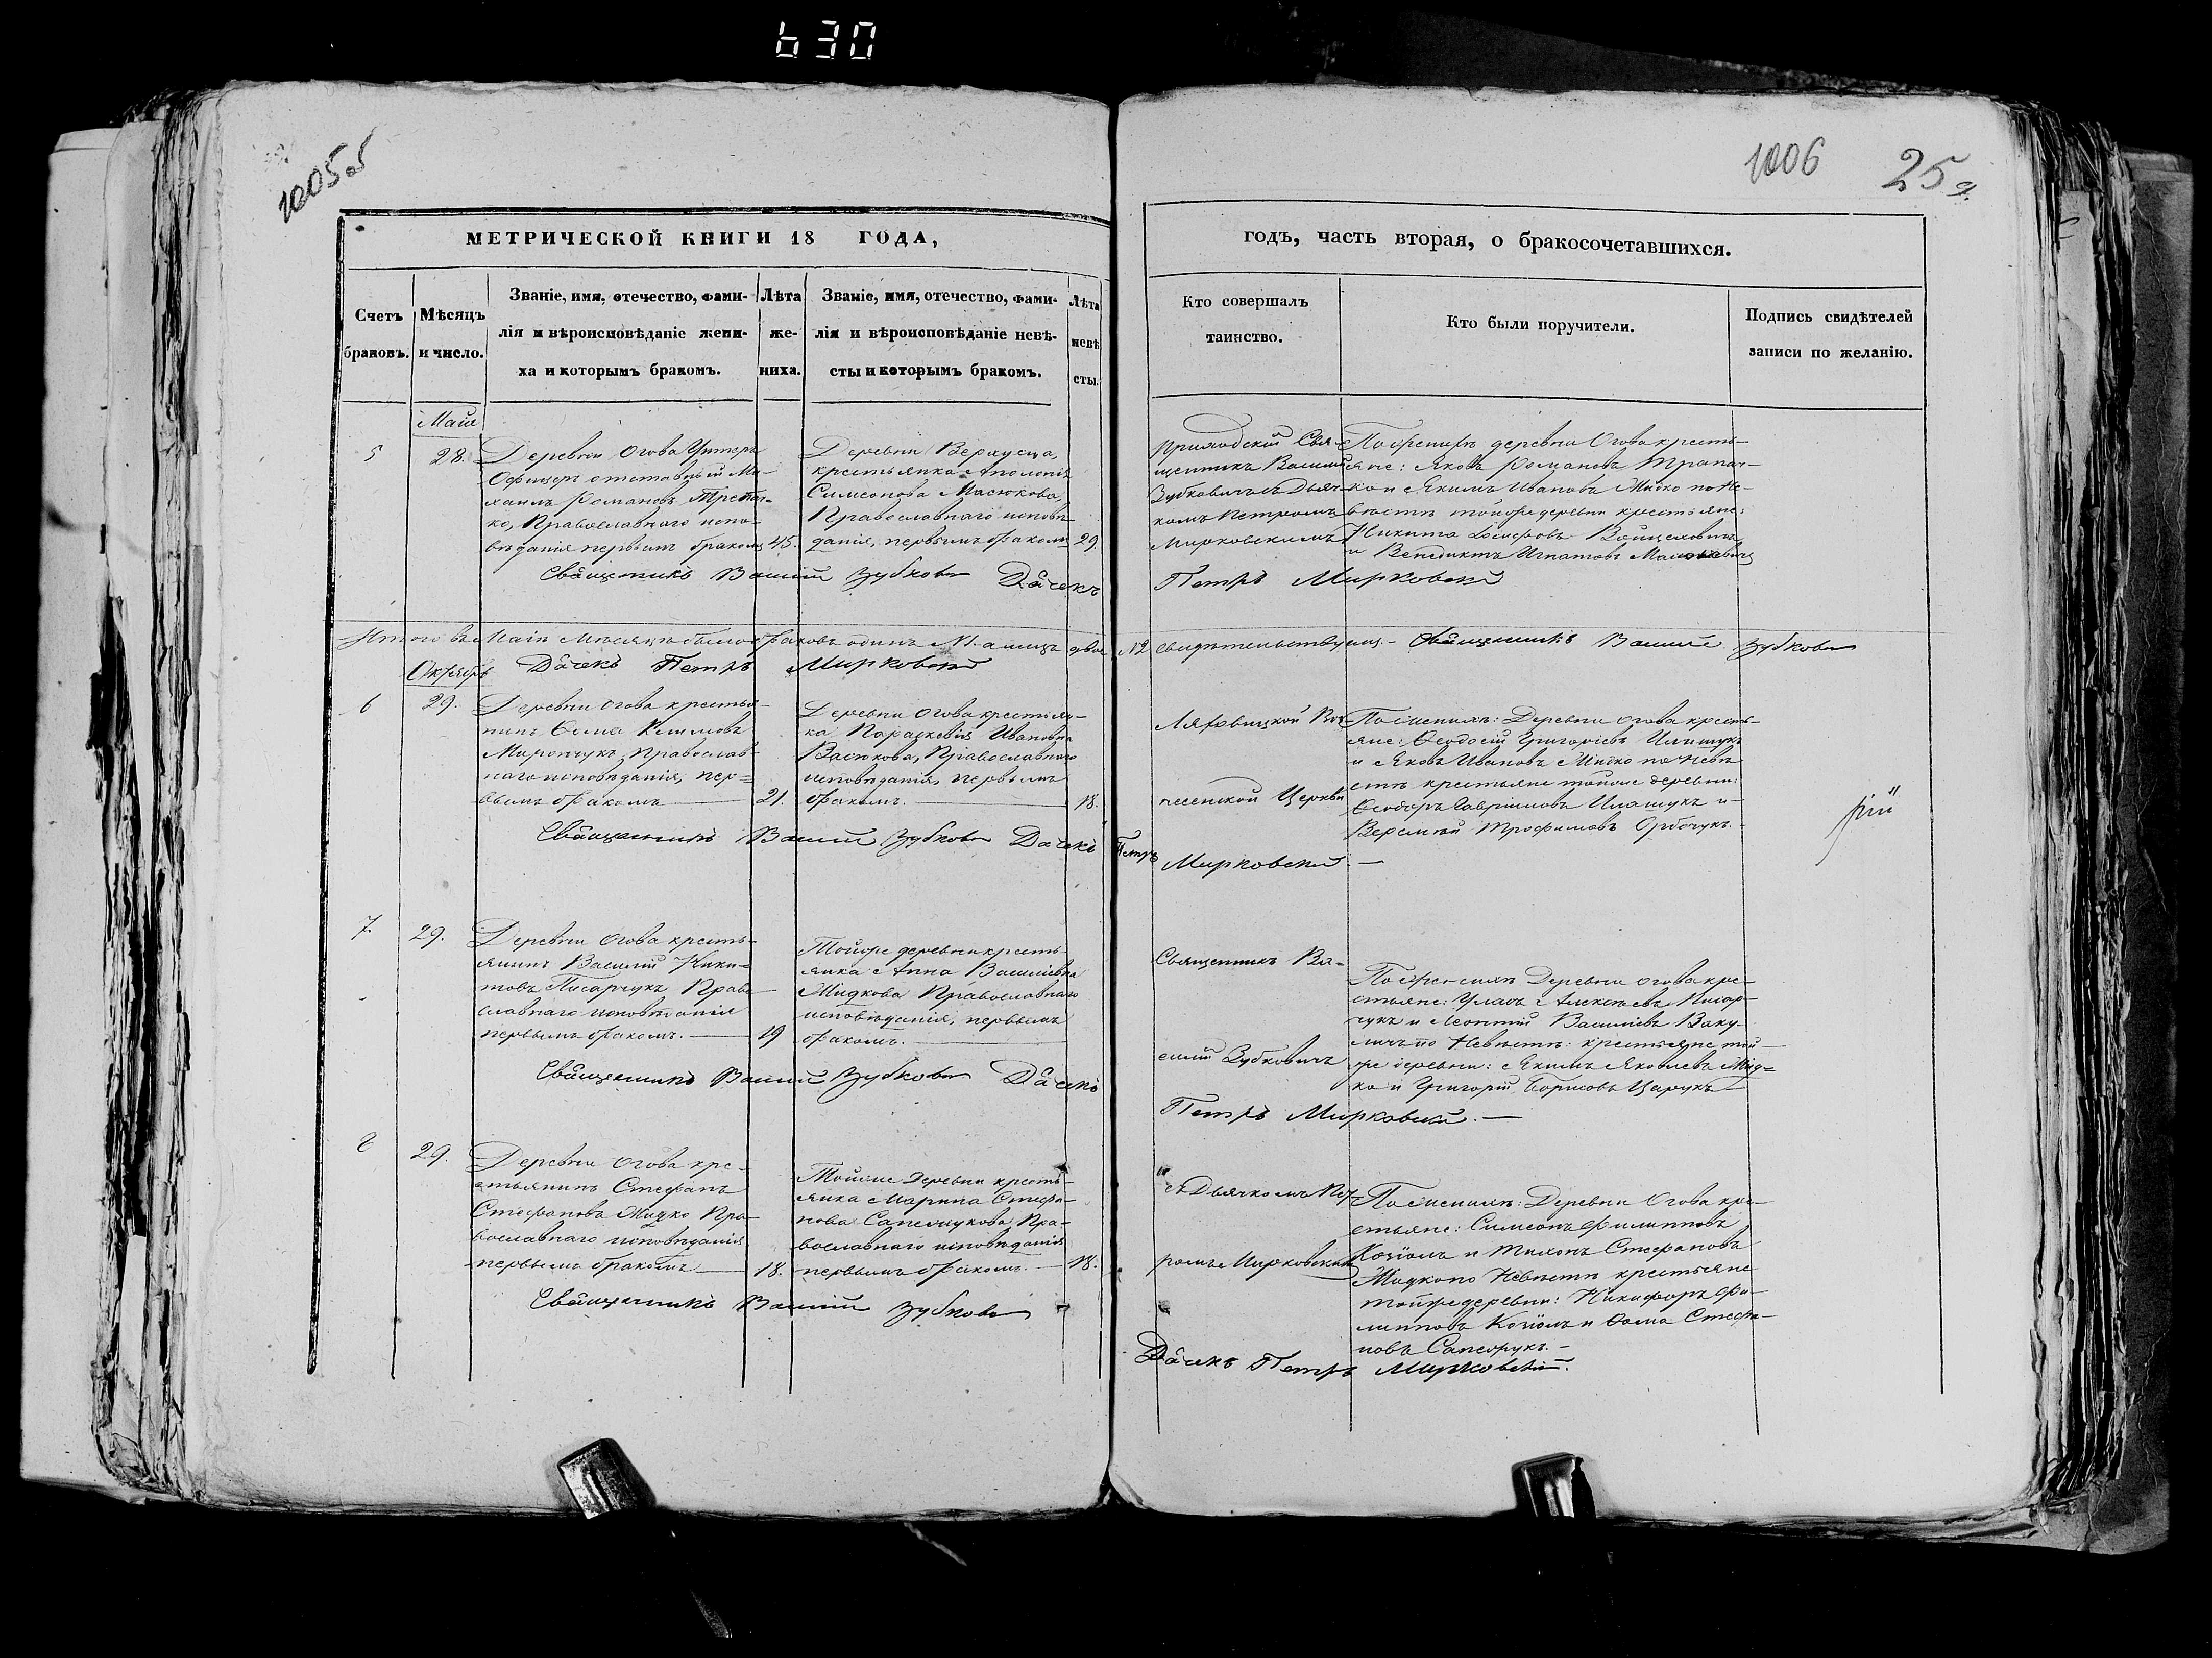 630
1005
1006
25
МЕТРИЧЕСКОЙ КНИГИ 18 ГОДА,
Счетъ браковъ.
Мѣсяцъ и число.
Званіе, имя, отечество, фами-
лія и вѣроисповѣданіе жени-
ха и которымъ бракомъ.
Лѣта
же-
ниха.
Званіе, имя, отечество, фами-
лія и вѣроисповѣданіе невѣ-
сты и которымъ бракомъ.
Лѣта
невѣ
сты.
годъ, часть вторая, о бракосочетавшихся.
Кто совершалъ
таинство.
Кто были поручители.
Подпись свидѣтелей
записи по желанію.
Маій
5
28.
Деревни Огова Унтеръ
Офицеръ отставный Ми-
хаилъ Романовъ
ко, Православнаго испо-
вѣданія первымъ бракомъ
45.
Деревни
крестьянка Аполонія
Симеонова Масюкова,
Православнаго исповѣ
данія, первымъ бракомъ
29.
Приходскій Свя-
щенникъ Василій
Зубковичъ съ Дьяч-
комъ Петромъ
Мирковскимъ
По женихѣ деревни Огова кресть-
яне: Яковъ Романовъ
ко и Якимъ Ивановъ Мидко по Не-
вѣстѣ тойже деревни крестьяне:
Никита
и Венедиктъ Игнатовъ
Священникъ Василій Зубкович Дьячекъ
Петръ Мирковскій
Итого въ Маіи Мѣсяцѣ было браковъ одинъ №1. а лицъ двое №2 свидѣтельствуемъ - Священникъ Василій Зубкович
Дьячекъ Петръ Мирковскій
Октябрь
6
29.
Деревни Огова крестья-
нинъ Ѳома Климовъ
Мирончукъ, Православ-
наго исповѣданія, пер=
вымъ бракомъ
21.
Деревни Огова крестьян-
ка Параскевія Ивановна
Васюкова, Православнаго
исповѣданія, первымъ
бракомъ.
18.
Ляховицкой Воз-
несенской Церкви
По женихѣ: Деревни Огова кресть-
яне: Ѳеодосій Григоріевъ Илашукъ
и Яковъ Ивановъ Мидко по невѣ
стѣ крестьяне тойже деревни:
Ѳеодоръ Гавриловъ Илашукъ и
Веремѣй Трофимовъ
Священникъ Василій Зубкович Дьячекъ Петръ
Мирковскій. —
7.
29.
Деревни Огова кресть-
янинъ Василій Ники-
товъ Писарчукъ Право
славнаго исповѣданія
первымъ бракомъ.
19
Тойже деревни кресть-
янка Анна Василіевна
Мидкова Православнаго
исповѣданія, первымъ
бракомъ.
Священникъ Ва-
силій Зубковичъ
По женихѣ Деревни Огова кре-
стьяне: Алексѣевъ Писар-
чукъ и Леонтій Василіевъ Ваку-
личъ по Невѣстѣ: крестьяне той-
же деревни: Якимъ Яковлевъ Мид=
ко и Григорій Борисовъ Царукъ
Священникъ Василій Зубкович Дьячекъ
Петръ Мирковскій. —
8
29.
Деревни Огова кре-
стьянинъ Стефанъ
Стефановъ Мидко Пра-
вославнаго исповѣданія
первымъ бракомъ
18.
Тойже Деревни кресть-
янка Марина Стефа-
нова Сапежукова, Пра-
вославнаго исповѣданія
первымъ бракомъ.
18.
съ Дьячкомъ Пет-
ромъ Мирковскимъ
По женихѣ: Деревни Огова кре-
стьяне: Симеонъ Филиповъ
Козіолъ и Тихонъ Стефановъ
Мидко по Невѣстѣ крестьяне
тойже деревни: Никифоръ Фи-
липовъ Козіолъ и Ѳома Стефа-
новъ
Священникъ Василій Зубкович
Дьячекъ Петръ Мирковскій.